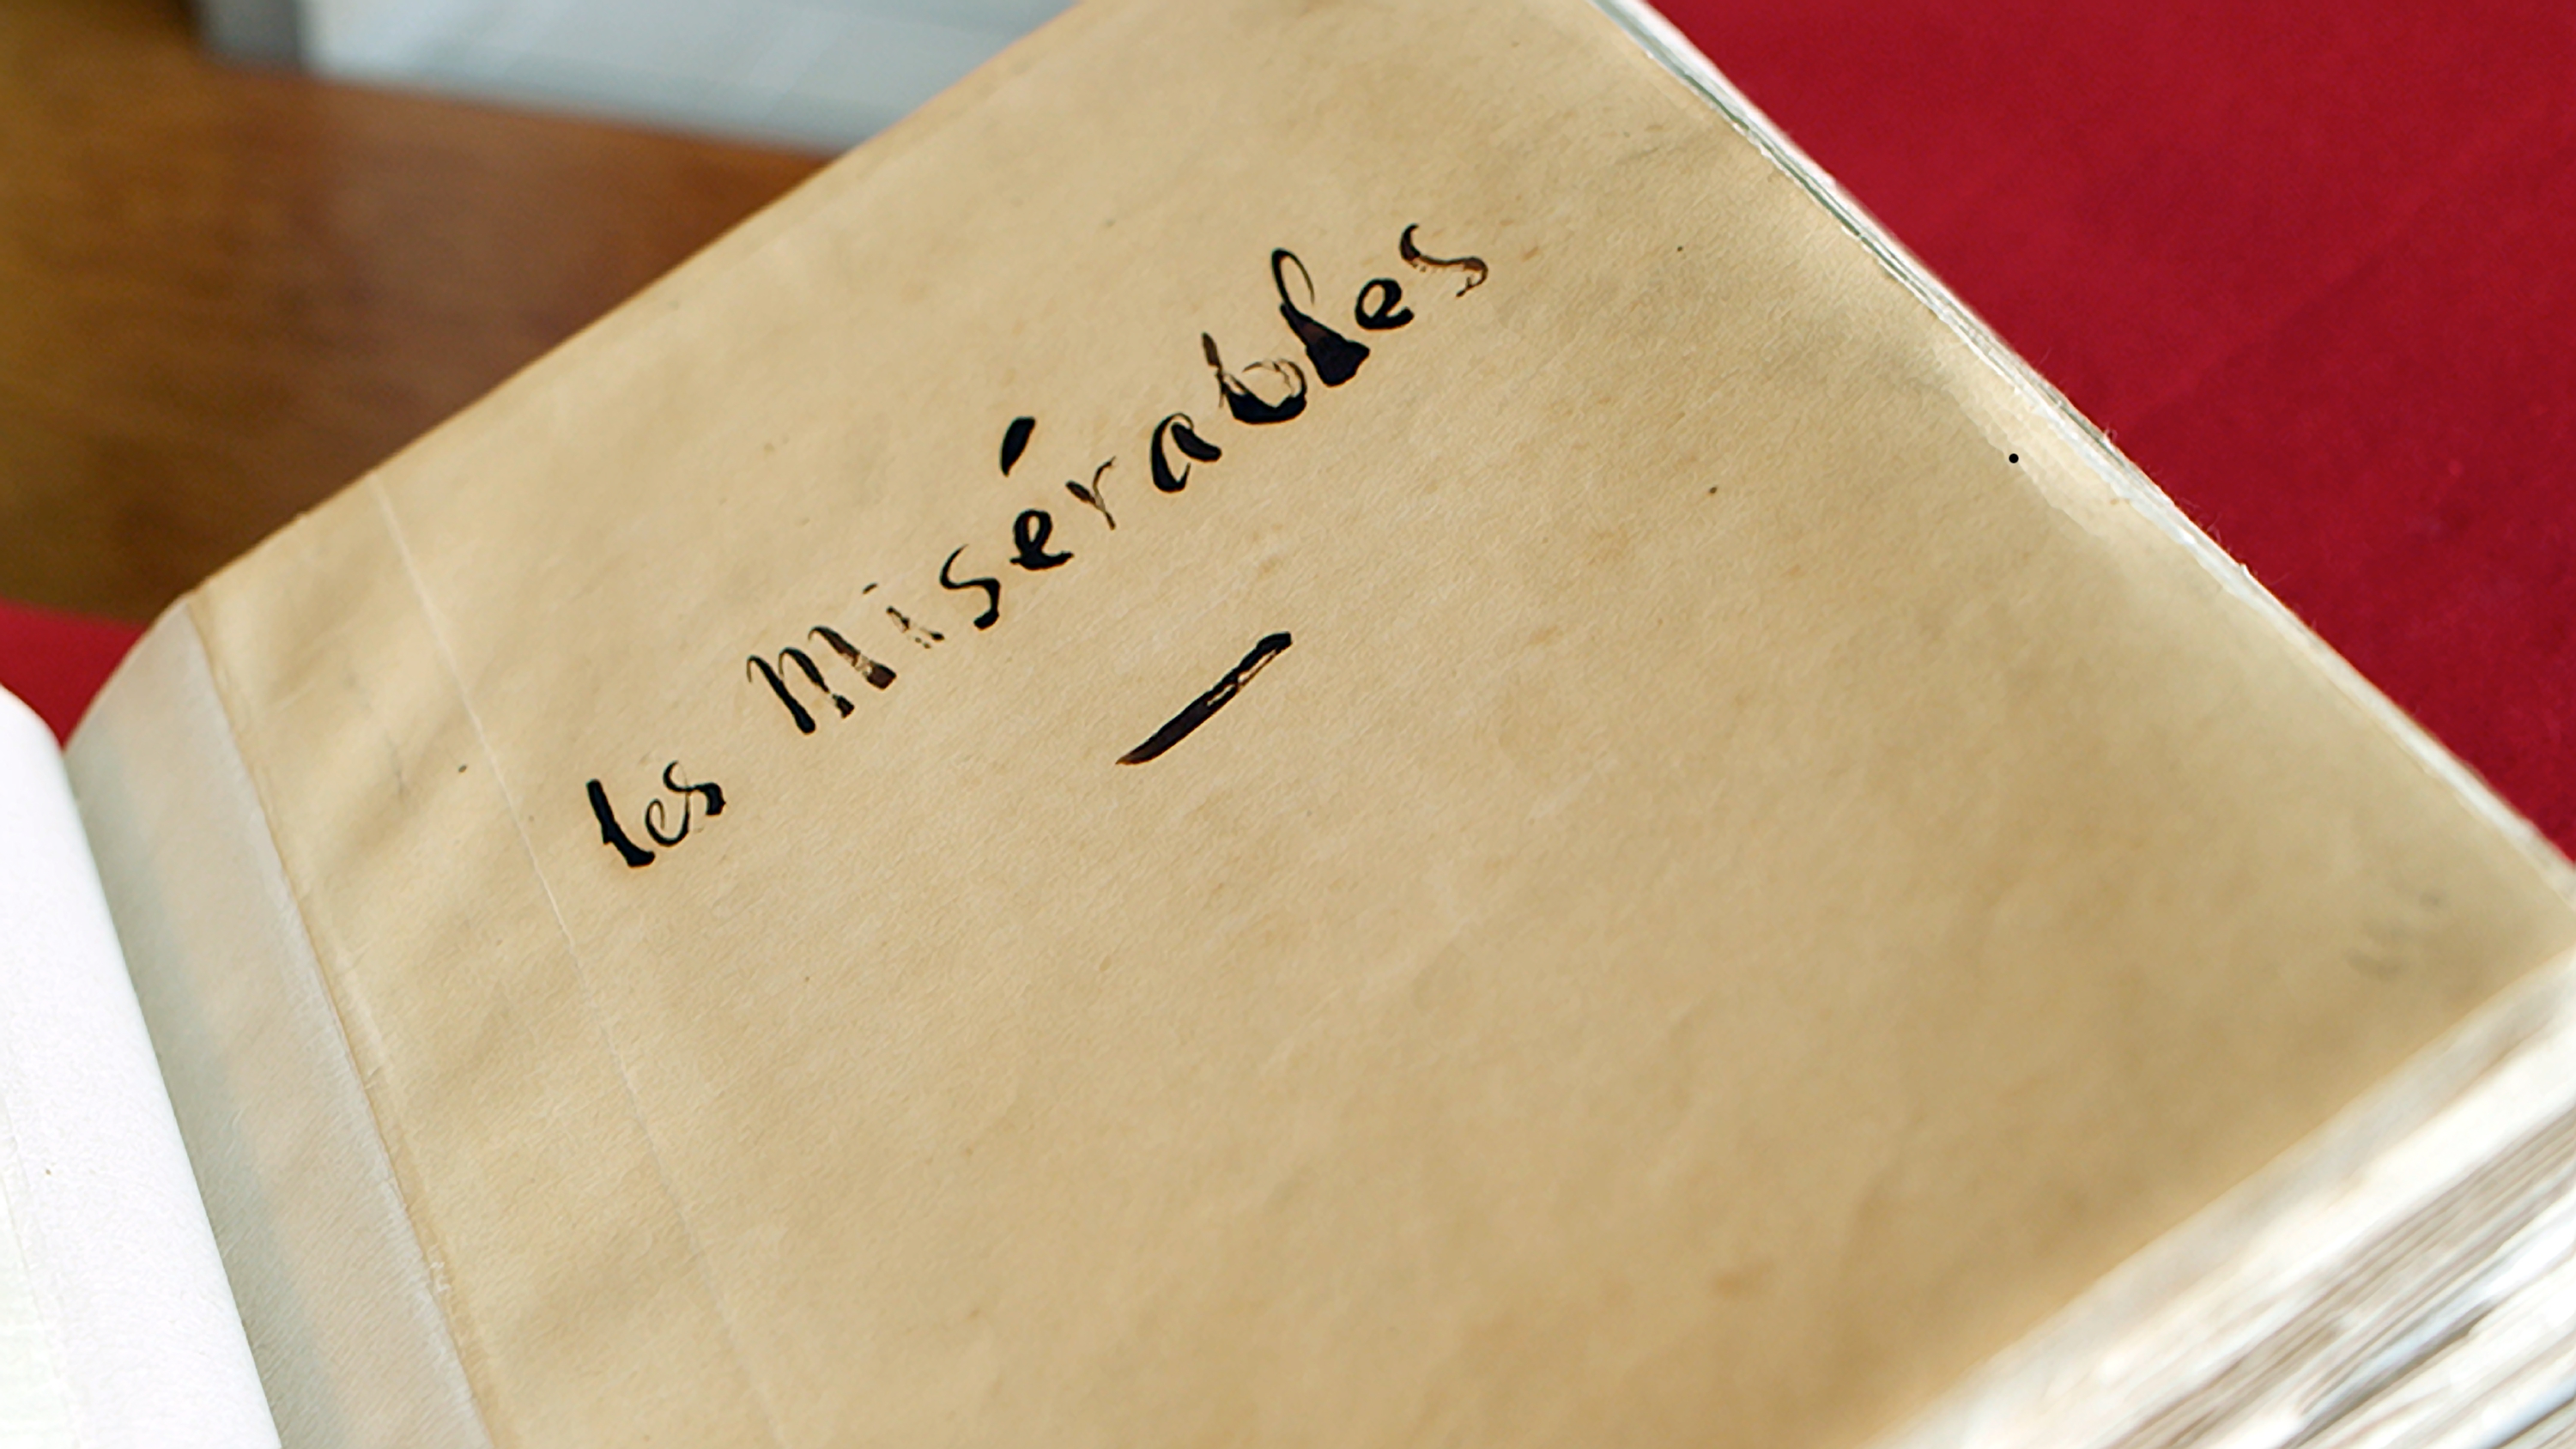 les Misérables